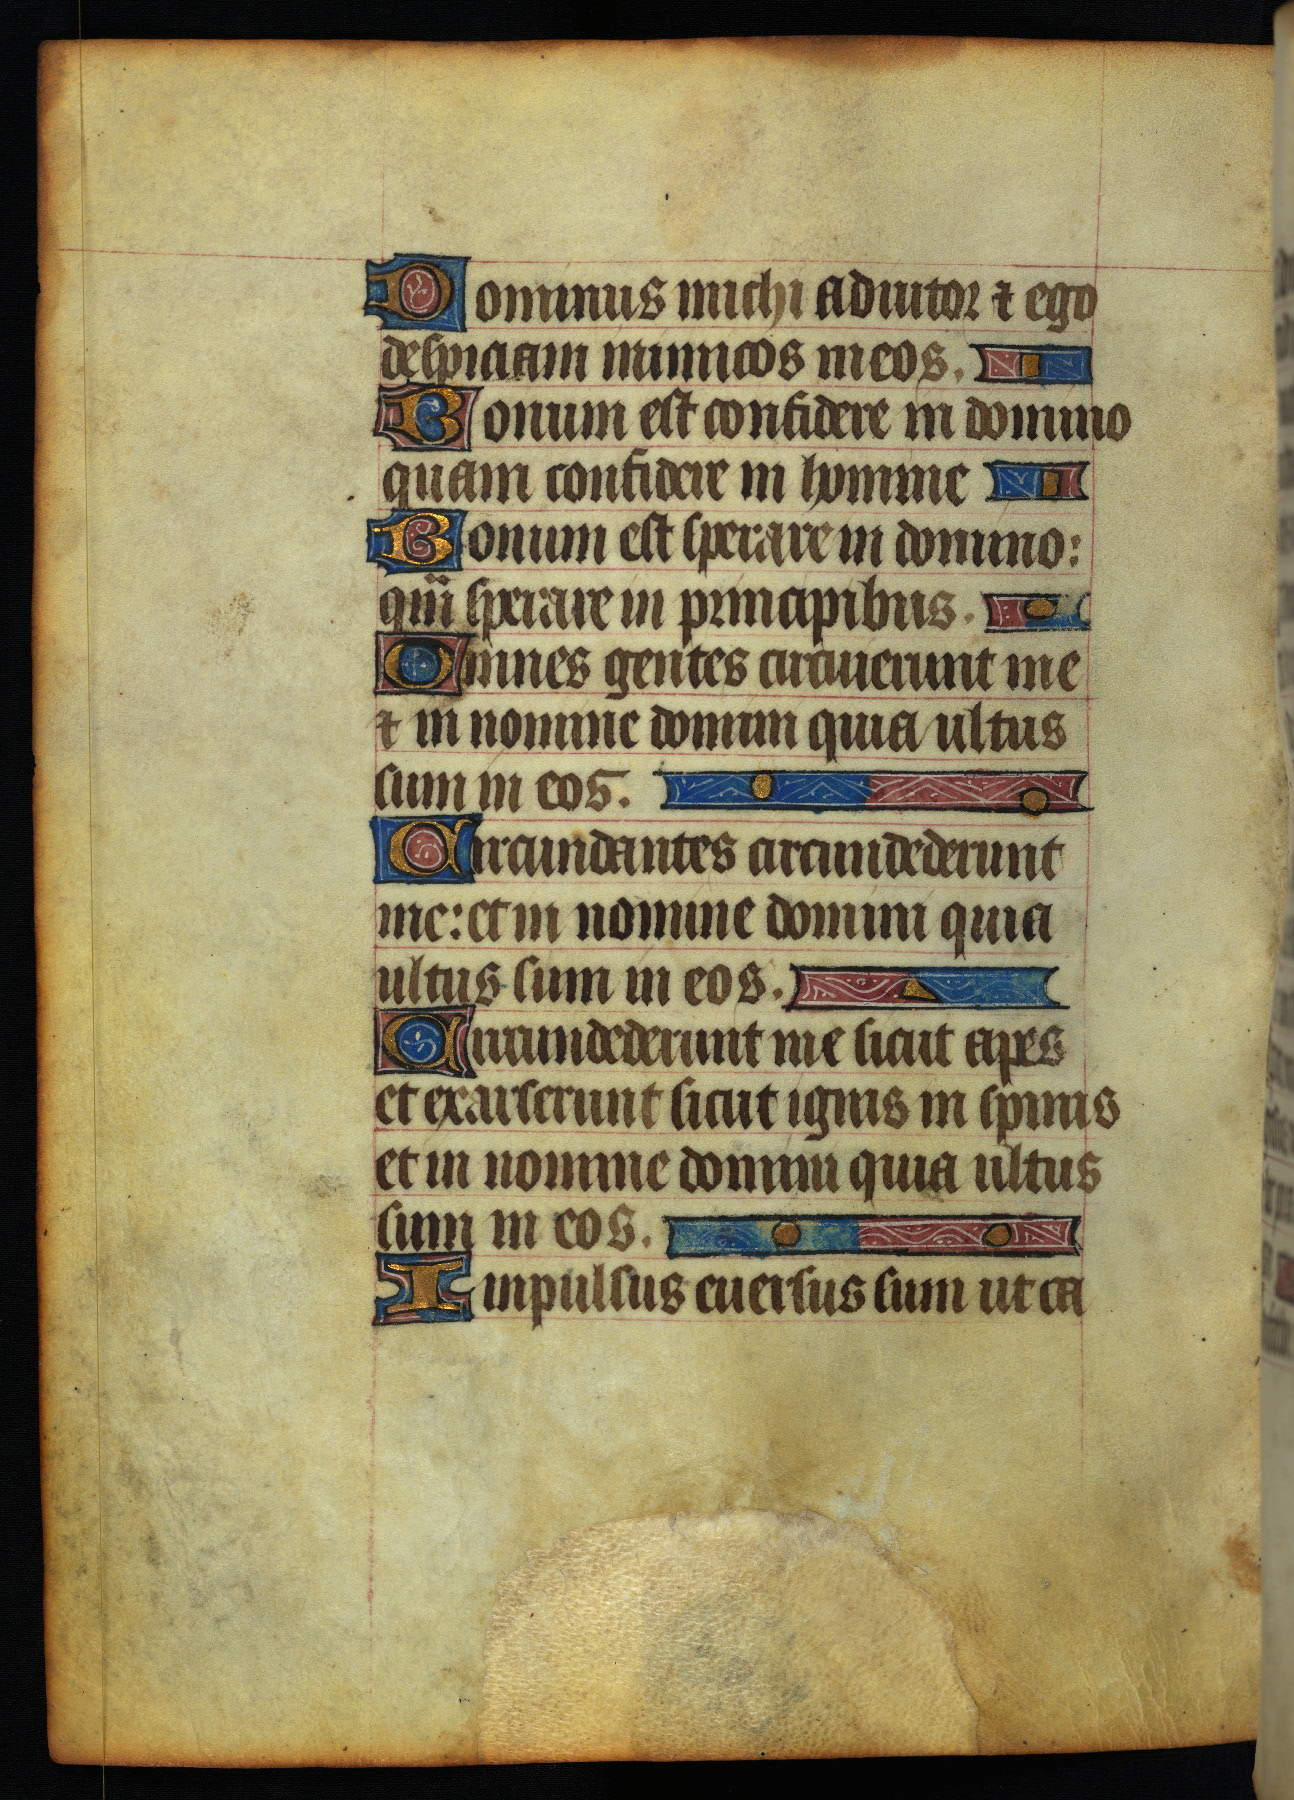 Dominus michi adiutor ⁊ ego
despiciam inimicos meos.
Bonum est confidere in domino
quam confidere in homine
Bonum est sperare in domino:
qm̄ sperare in principibus.
Omnes gentes circuierunt me
⁊ in nomine domini quia ultus
sum in eos.
Circundantes circundederunt
me: et in nomine domini quia
ultus sum in eos.
Circundederunt me sicut apes
et exarserunt sicut ignis in spinis
et in nomine domini quia ultus
sum in eos.
Iinpulsus euersus sum ut ca